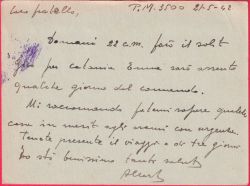 Caro fratello, P.M. 3500 21-5-42
Domani 22 c.m. farò il solito
giro per Catania Enna sarò assente
qualche giorno dal comando.
Mi raccomando fatemi sapere qualche
cosa in merito agli esami con urgenza.
Tenete presente il viaggio di tre giorni
Io sto benissimo tanti saluti